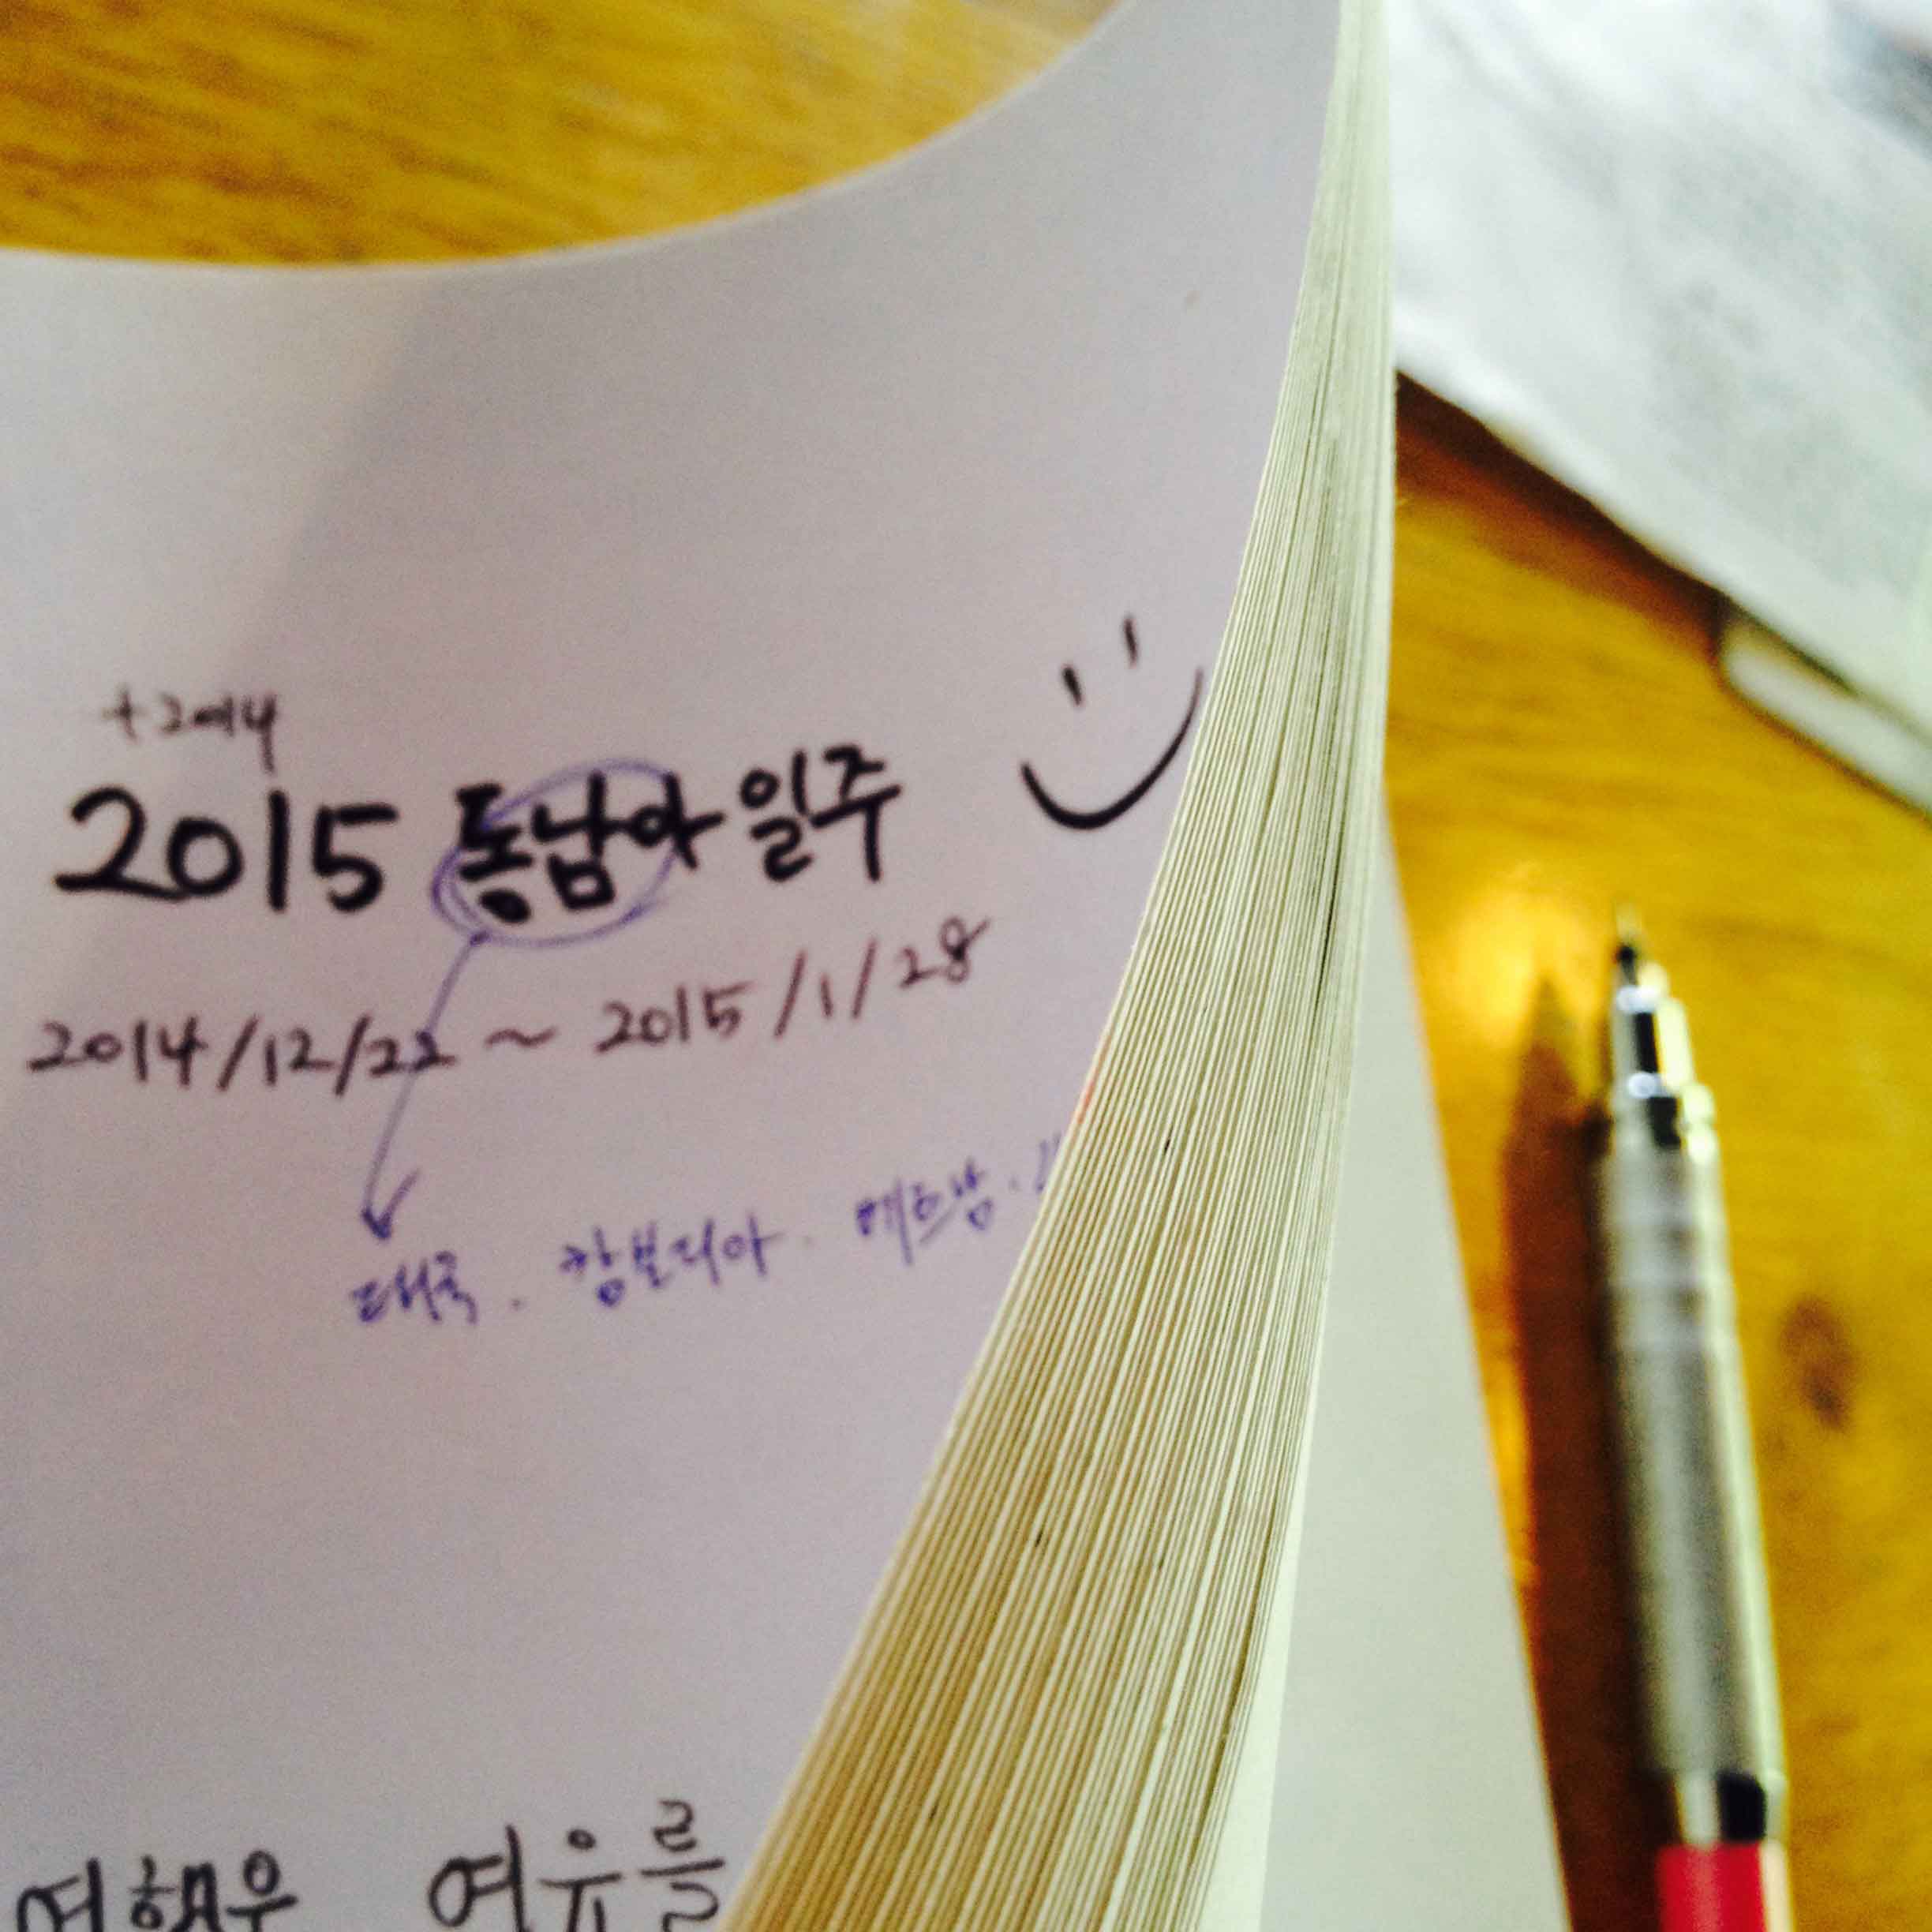 +2014
2015 동남아 일주
2014/12/22 ~ 2015/1/28
태국 . 캄보디아 . 베트남 .
여행은 여유를